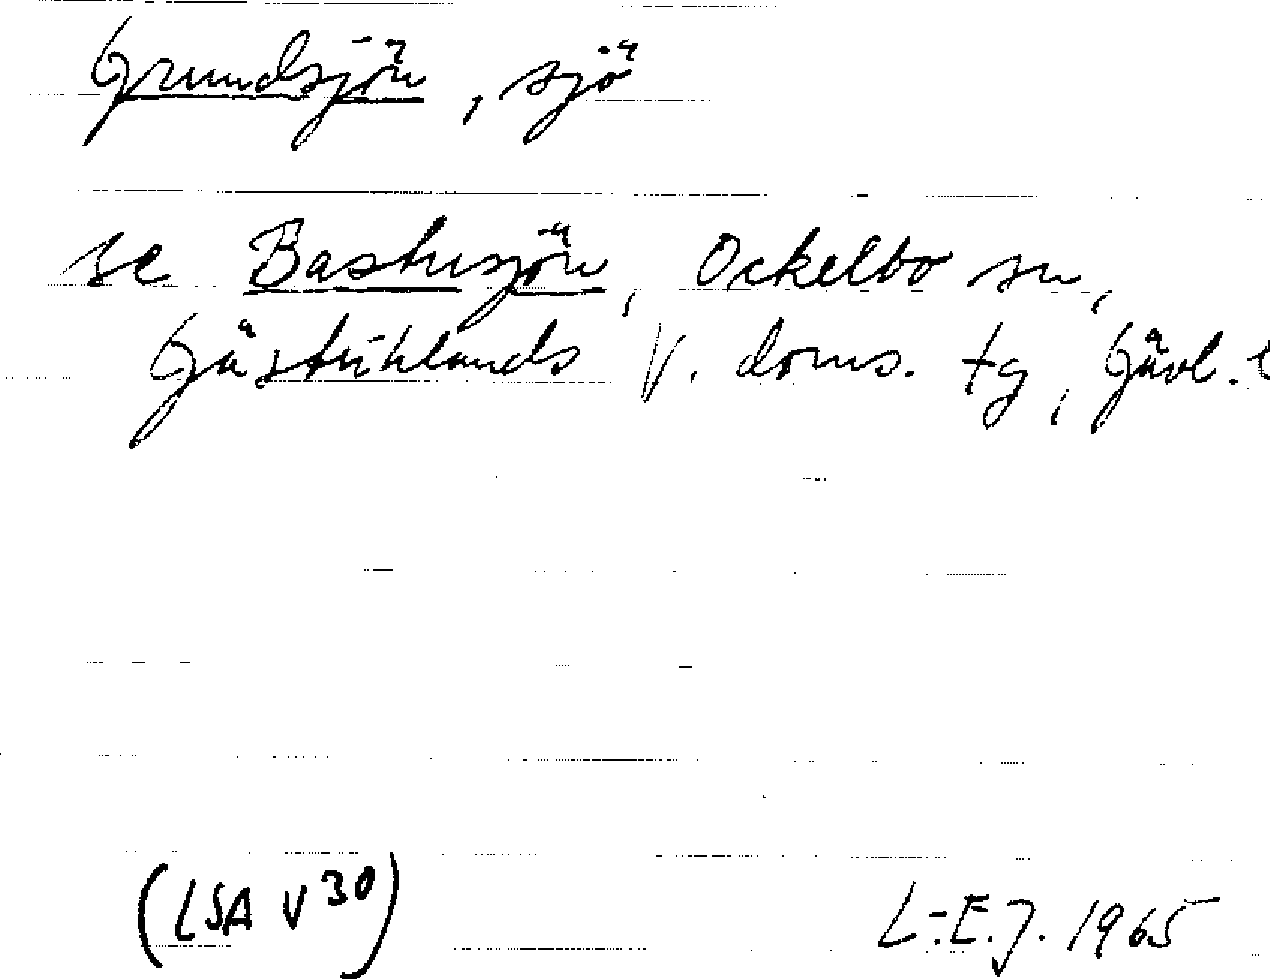 Grundsjön, sjö
se Bastusjön, Ockelbo sn,
Gästriklands V. doms. tg, Gävl. l
(LSA V 30)
L-E.J. 1965